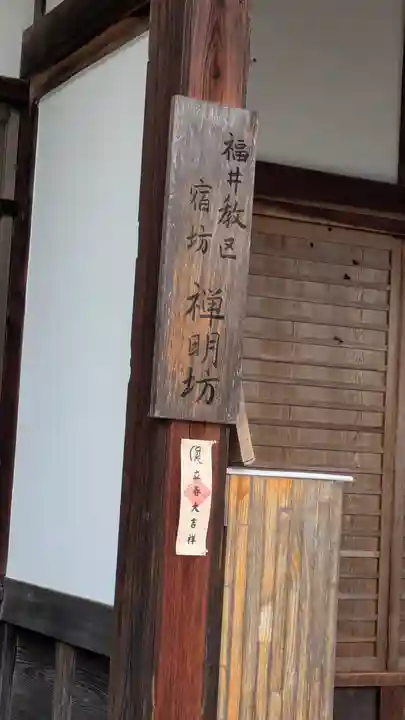 福井教区
宿坊
禅明坊
立春大吉祥